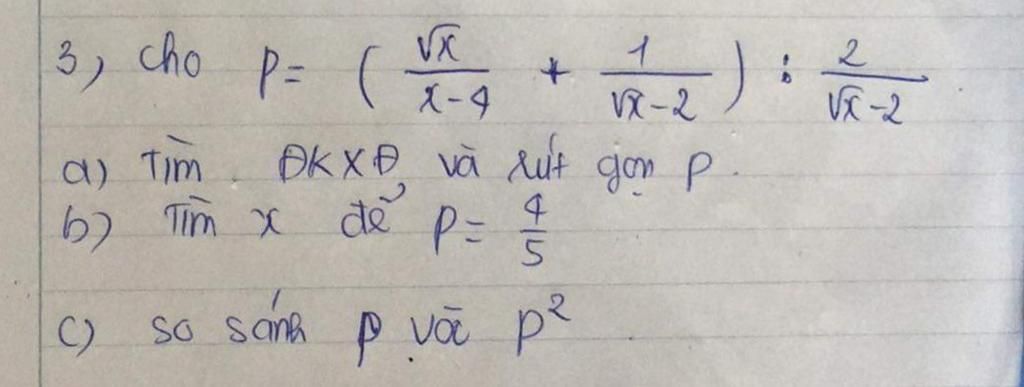 3, cho P = ( √x / x-4 + 1 / √x-2 ) : 2 / √x-2
a) Tìm ĐKXĐ và rút gọn P.
b) Tìm x để P = 4/5
c) so sánh P và P²